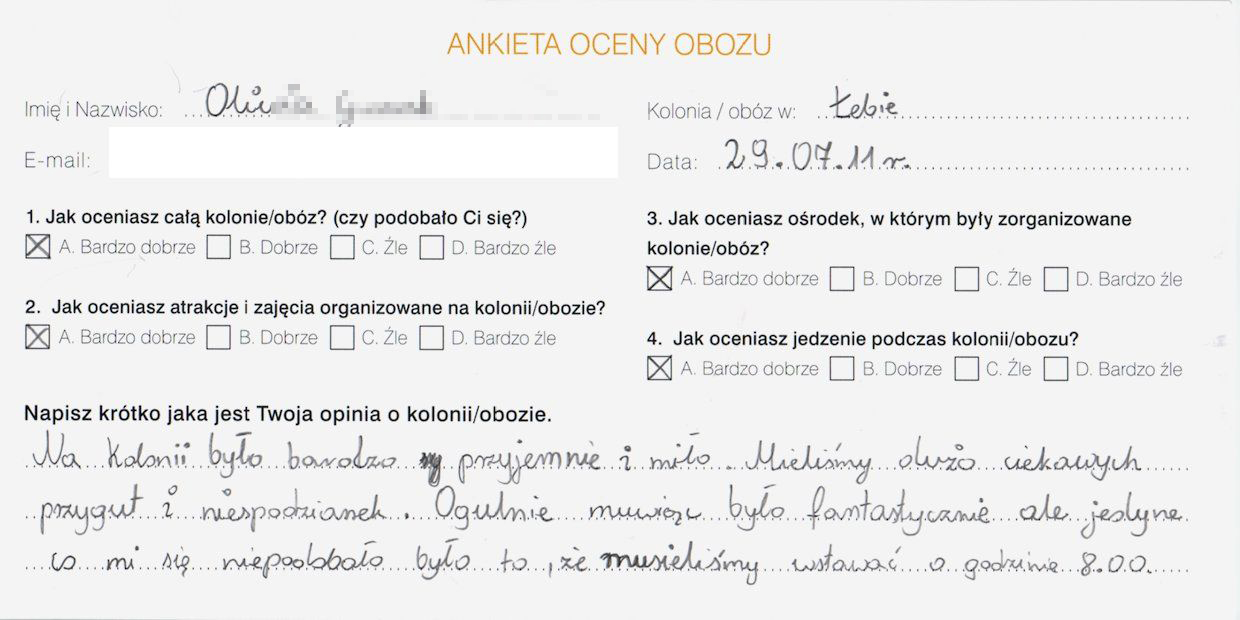 ANKIETA OCENY OBOZU
Imię i Nazwisko:
Kolonia / obóz w: Łebie
E-mail:
Data: 29.07.11 r.
1. Jak oceniasz całą kolonie/obóz? (czy podobało Ci się?)
A. Bardzo dobrze B. Dobrze C. Źle D. Bardzo źle
2. Jak oceniasz atrakcje i zajęcia organizowane na kolonii/obozie?
A. Bardzo dobrze B. Dobrze C. Źle D. Bardzo źle
3. Jak oceniasz ośrodek, w którym były zorganizowane
kolonie/obóz?
A. Bardzo dobrze B. Dobrze C. Źle D. Bardzo źle
4. Jak oceniasz jedzenie podczas kolonii/obozu?
A. Bardzo dobrze B. Dobrze C. Źle D. Bardzo źle
Napisz krótko jaka jest Twoja opinia o kolonii/obozie.
Na kolonii było bardzo przyjemnie i miło. Mieliśmy dużo ciekawych
przygut i niespodzianek. Ogulnie muwiąc było fantastycznie ale jedyne
co mi się niepodobało było to, że musieliśmy wstawać o godzinie 8.00.